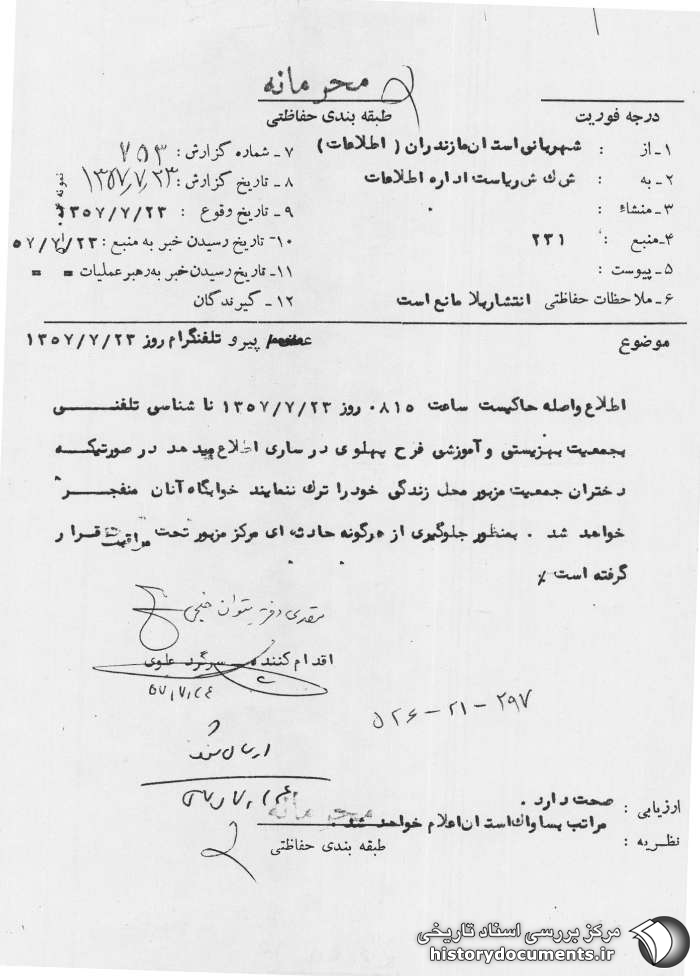 محرمانه
طبقه بندی حفاظتی
درجه فوریت
۱ـ از : شهربانی استان مازندران ( اطلاعات )
۲ـ به : ش ک ش ریاست اداره اطلاعات
۳ـ منشاء :
۴ـ منبع : ۲۳۱
۵ـ پیوست :
۶ـ ملاحظات حفاظتی انتشار بلا مانع است
۷ـ شماره گزارش : ۷۵۳
۸ـ تاریخ گزارش : ۱۳۵۷/۷/۲۳
۹ـ تاریخ وقوع : ۱۳۵۷/۷/۲۳
۱۰ـ تاریخ رسیدن خبر به منبع : ۵۷/۷/۲۳
۱۱ـ تاریخ رسیدن خبر به رهبر عملیات = =
۱۲ـ گیرندگان
نمونه
موضوع
پیرو تلفنگرام روز ۱۳۵۷/۷/۲۳
اطلاع واصله حاکیست ساعت ۰۸۱۵ روز ۱۳۵۷/۷/۲۳ نا شناسی تلفنی
بجمعیت بهزیستی و آموزشی فرح پهلوی در ساری اطلاع میدهد در صورتیکه
دختران جمعیت مزبور محل زندگی خود را ترک ننمایند خوابگاه آنان منفجر
خواهد شد . بمنظور جلوگیری از هرگونه حادثه ای مرکز مزبور تحت مراقبت قرار
گرفته است
اقدام کننده سرگرد علوی
۵۲۶-۲۱-۲۹۷
ارسال شد
ارزیابی : صحت دارد .
نظریه : مراتب بساواک استان اعلام خواهد شد .
محرمانه
طبقه بندی حفاظتی
مرکز بررسی اسناد تاریخی
historydocuments.ir